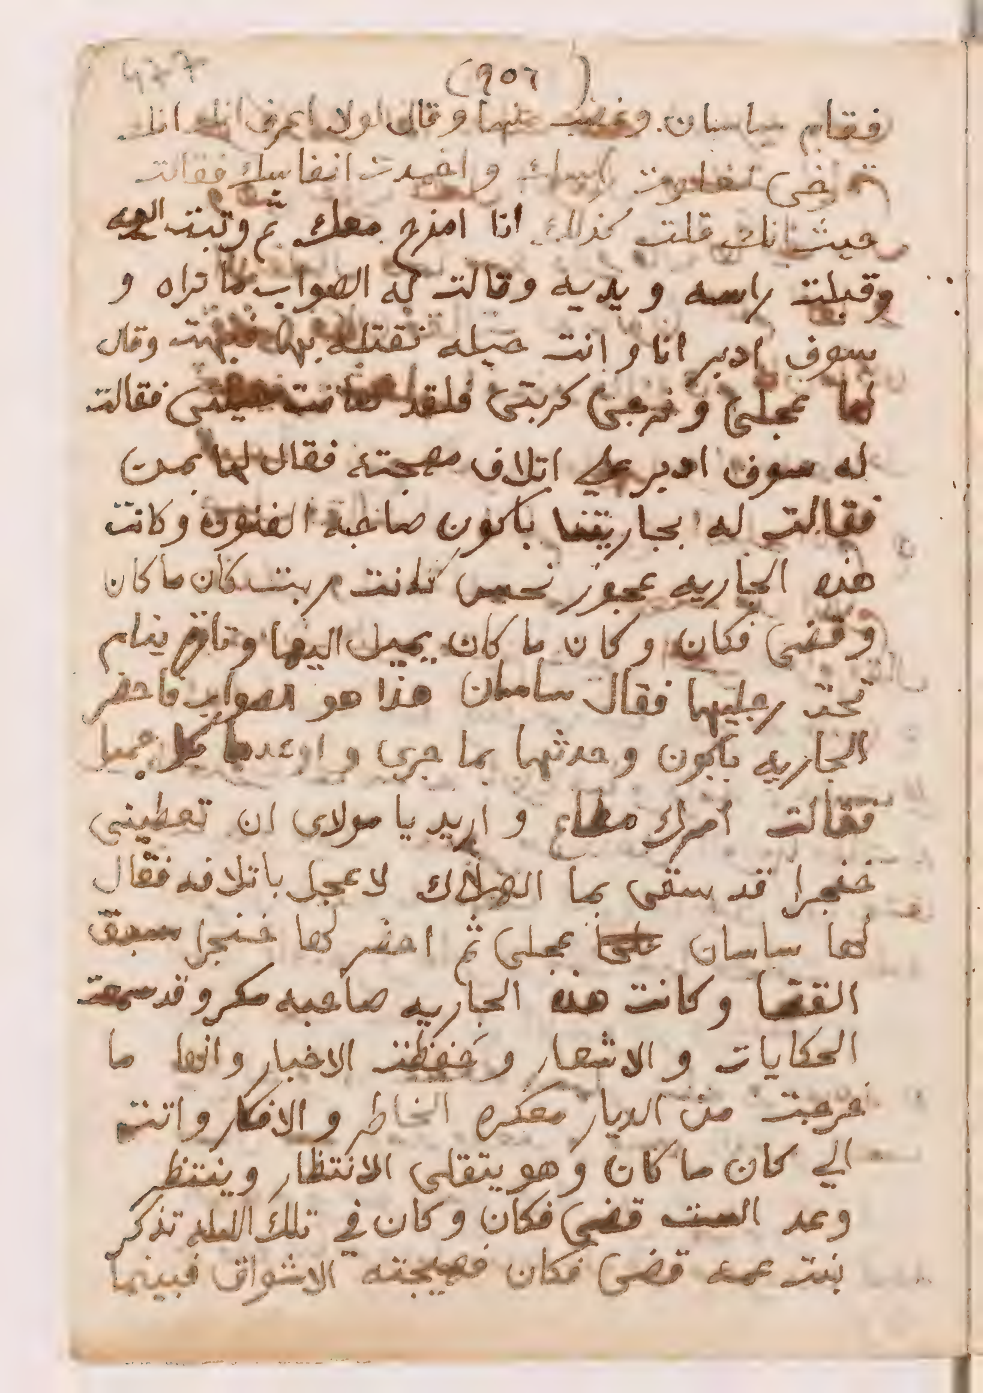 (٩٥٦)
٤٧٧
فقام ساسان وغضب عليها وقال لولا اعرف انك
تمزحي واخمدت انفاسك فقالت
حيث انك قلت كذلك انا امزح معك ثم وثبت اليه
وقبلت راسه ويديه وقالت له الصواب ما تراه و
سوف ادبر انا وانت حيله نقتله بها وقال
لها عجلي وفرجي كربتي فلقد حيلتي فقالت
له سوف ادبر على اتلاف مهجته فقال لها بمن
فقالت له بجاريتنا باكون صاحبة الفنون وكانت
هذه الجاريه عجوز نحس كانت ربت كان ما كان
وقضى فكان وكان ما كان يميل اليها وينام
تحت رجليها فقال ساسان هذا هو الصواب فاحضر
الجاريه باكون وحدثها بما جرى واوعدها بكل جميل
فقالت امرك مطاع و اريد يا مولاى ان تعطيني
خنجرا قد سقى بما الهلاك لاعجل باتلافه فقال
لها ساسان عجلي ثم احضر لها خنجرا سبق
القضا وكانت هذه الجاريه صاحبه مكر وقد سمعت
الحكايات و الاشعار وحفظت الاخبار وانها ما
خرجت من الديار معكره الخاطر و الافكار واتت
الى كان ما كان وهو يتقلى الانتظار وينتظر
وعد الست قضى فكان وكان في تلك الليله تذكر
بنت عمه قضى فكان فهيجته الاشواق فبينما